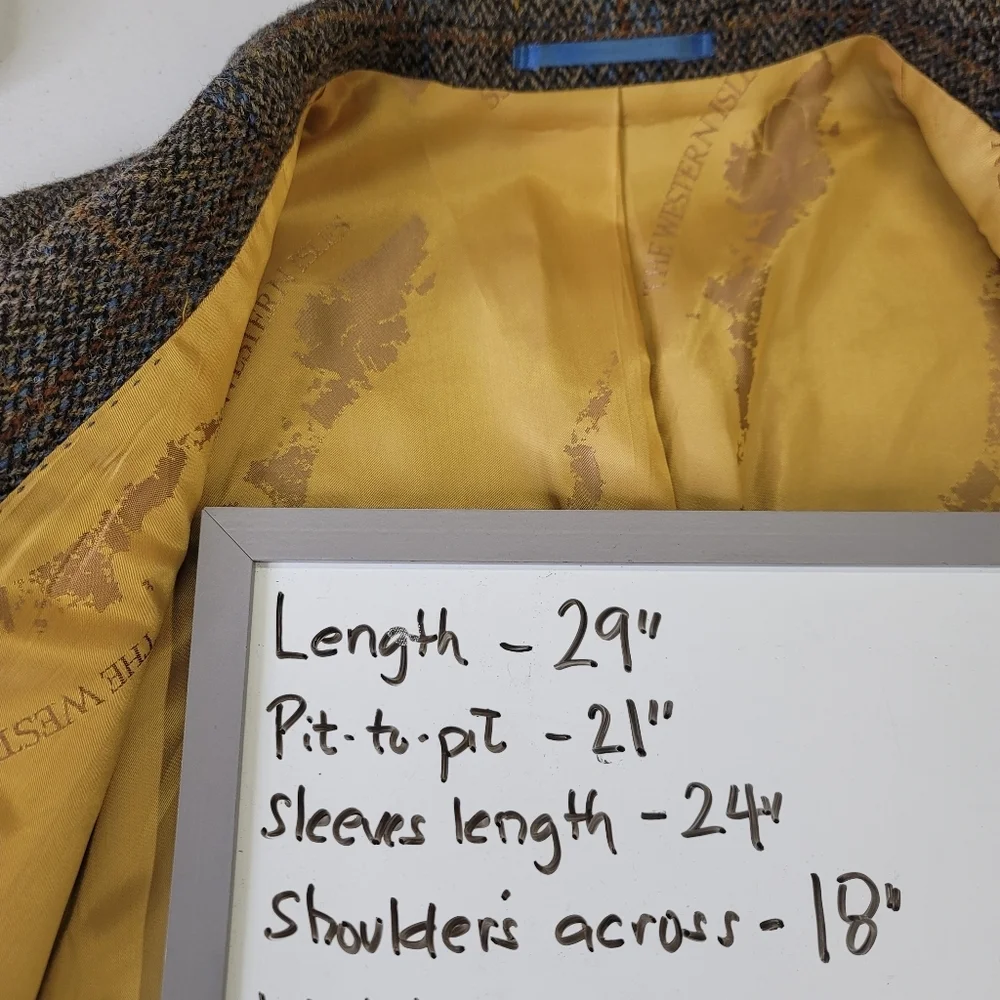 THE WESTERN ISL
WESTERN ISLES
THE WEST
Length - 29"
Pit-to-pit - 21"
Sleeves length - 24"
Shoulder's across - 18"